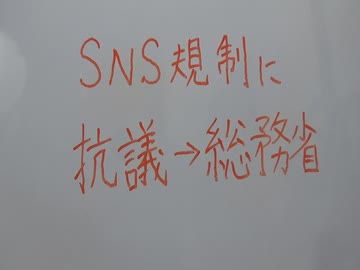 SNS規制に
抗議→総務省